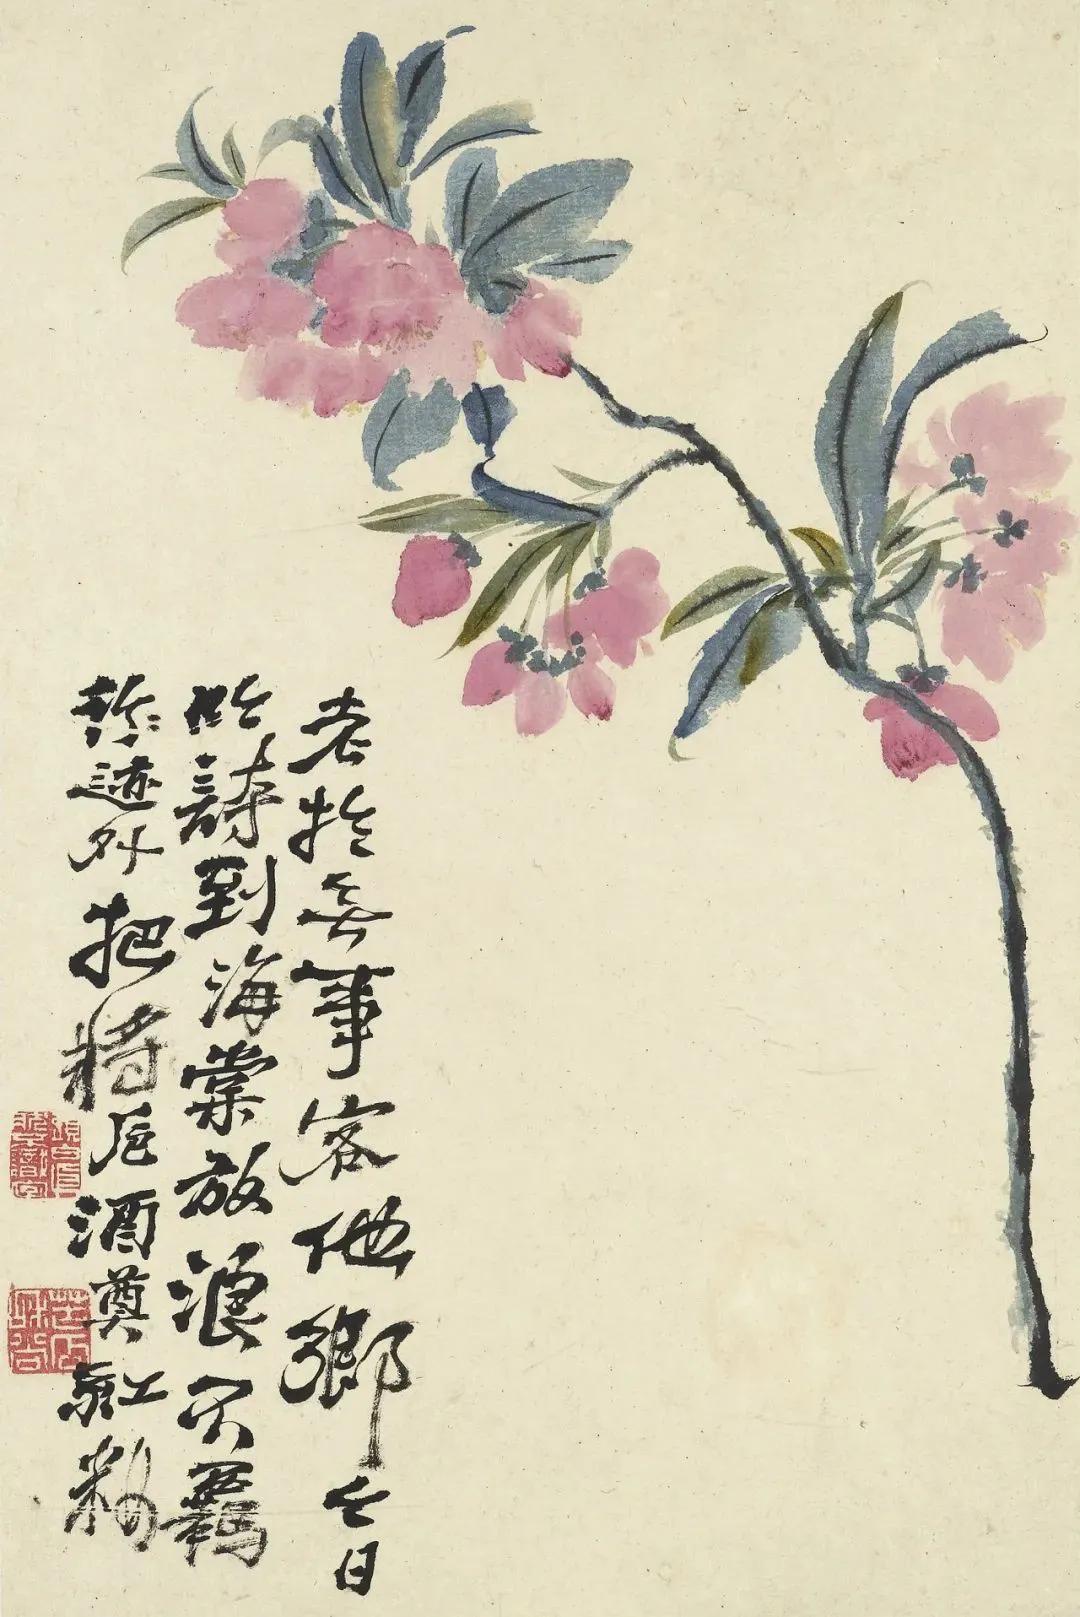 老於無事客他鄉今日
吟詩到海棠放浪不羈
形迹外把將卮酒奠紅粧